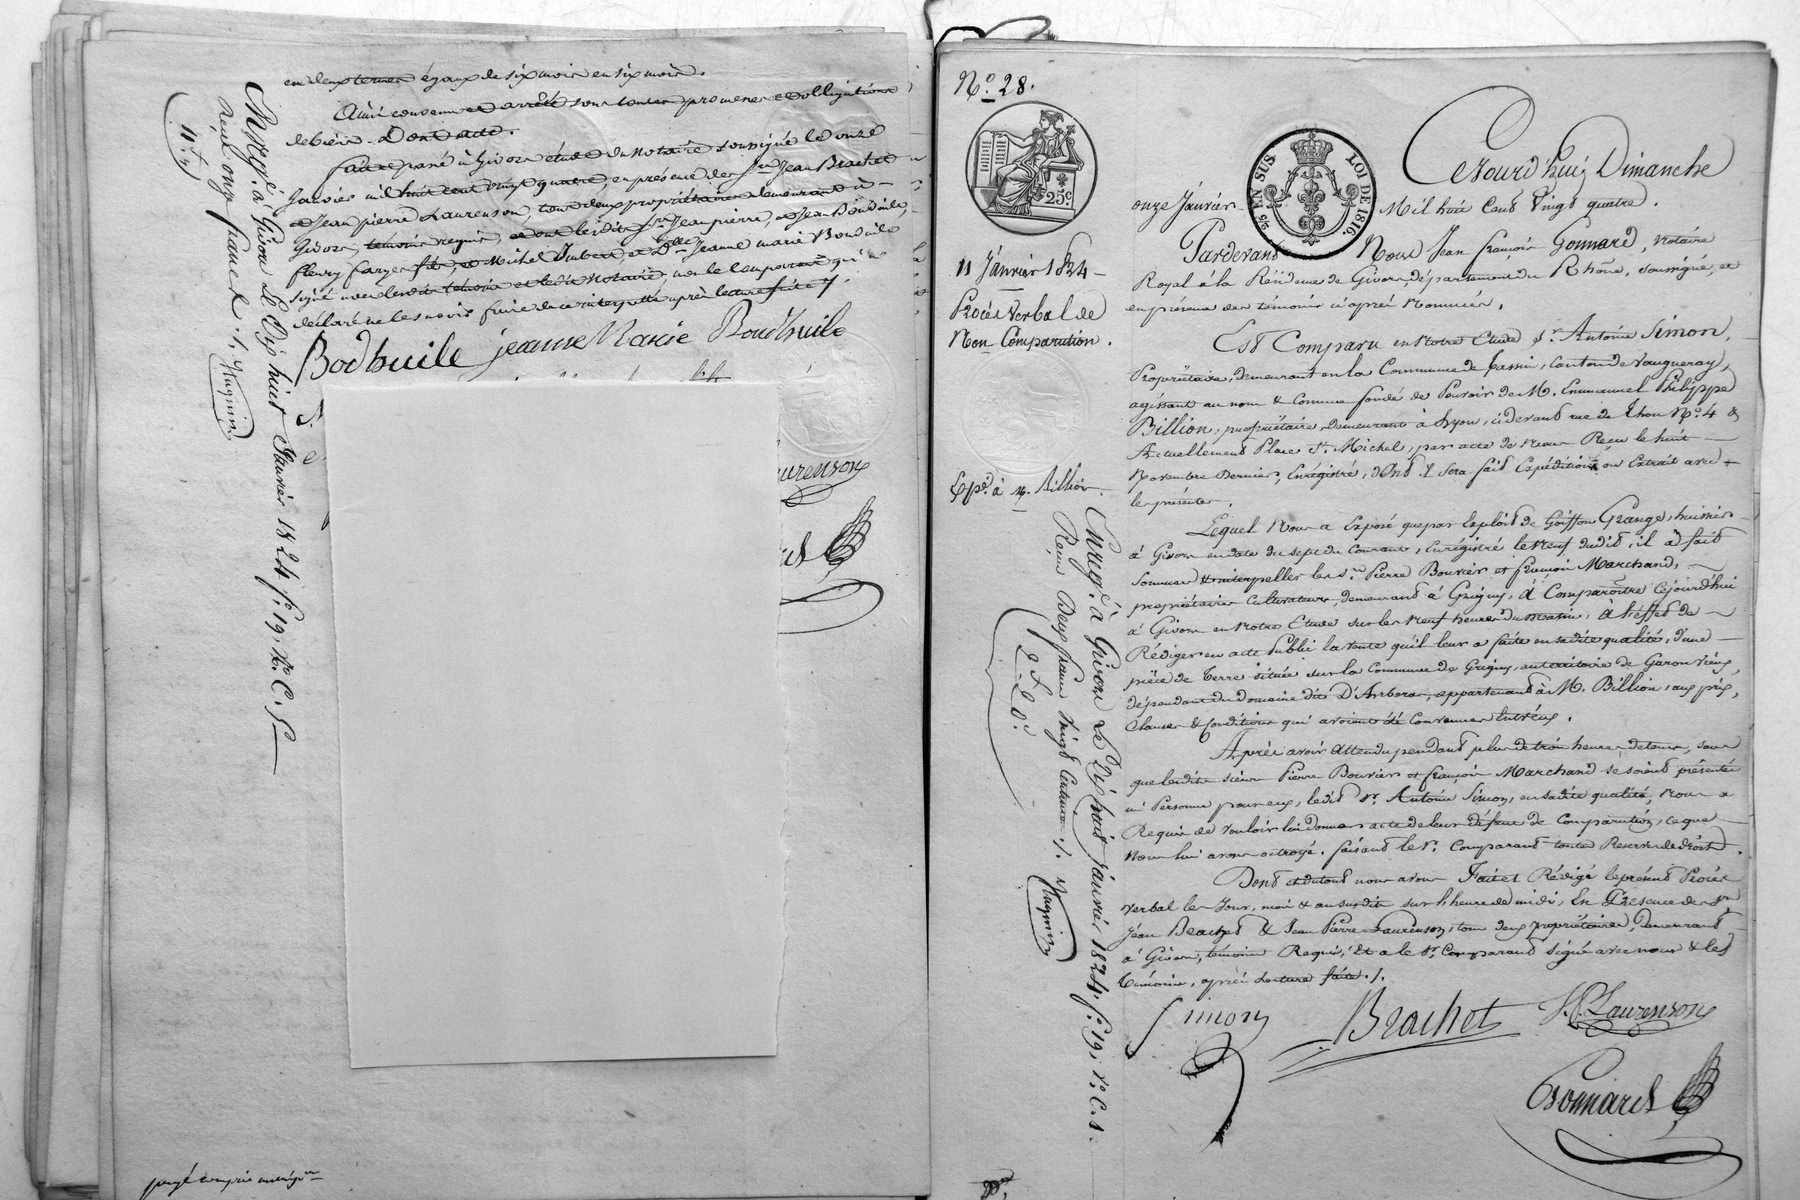 en deux termes égaux de six mois en six mois.
Ainsi convenu et arrêté sous toutes promesses et obligations
de biens. Dont acte.
fait et passé à Givors étude du Notaire soussigné le onze
Janvier mil huit cent vingt quatre, en présence des Srs Jean Brachet
et Jean pierre Laurenson, tous deux propriétaires demeurant à
Givors, témoins requis, et ont lesdits Srs Jean pierre, et Jean Bodhuile,
fleury farge fils, et Michel Imbert, et Dlle Jeanne marie Bouduile
signé avec lesdits témoins et ledit Notaire, non le
déclaré ne le savoir faire de ce interpellé après lecture faite
Bodhuile jeanne Marie Boudhuile
aurenson
Enregé. à Givors Le Dix huit Janvier 1824. fo. 19. Ro. C. 5
Reçu onze francs
11 f.
Mugnin
N.o 28.
EN SUS
LOI DE 1816.
25c.
11 Janvier 1824
Procès Verbal de
Non-Comparution.
Expé. à M. Billion
Enregé. à Givors Le Dix huit janvier 1824. fo. 19. Vo. C. 1.
Reçu Deux francs Vingt Centimes
2 f. 20 c.
Mugnin
Cejourd'hui Dimanche
onze Janvier Mil huit Cent Vingt quatre.
Pardevant Nous Jean françois Gonnard, Notaire
Royal à la Résidence de Givors, département du Rhône, soussigné, et
en présence des témoins ci après Nommés,
Est Comparu en Notre Etude Sr. Antoine Simon,
Propriétaire, demeurant en la Commune de Vaugneray,
agissant au nom & Comme fondé de Pouvoir de M. Emmanuel Philippe
Billion, propriétaire, demeurant à Lyon, ci devant rue de Thou No. 4 &
Actuellement Place St. Michel, par acte de Nous Reçu le huit
Novembre Dernier, Enregistré, dont il Sera fait Expédition ou Extrait avec
les présentes.
Lequel Nous a Exposé que par Exploit de Goiffon Grange, huissier
à Givors en date du sept du Courant, Enregistré le Neuf dudit, il a fait
Sommer & interpeller les Srs Pierre Bouvier et françois Marchand,
propriétaires Cultivateurs, demeurant à Grigny, à Comparoître Cejourd'hui
à Givors en Notre Etude sur les Neuf heures du matin, à l'effet de
Rédiger en acte Public la Vente qu'il leur a faite en sadite qualité, d'une
pièce de Terre située sur la Commune de Grigny, au territoire de Garon vieux,
dépendant du Domaine dit D'Arboras, appartenant à M. Billion, aux prix,
Clauses & Conditions qui avoient été Convenues Entr'eux.
Après avoir Attendu pendant plus de trois heures, sans
que lesdits sieurs Pierre Bouvier et françois Marchand se soient présentés
ni Personne pour eux, ledit Sr. Antoine Simon, en sadite qualité, Nous a
Requis de vouloir lui donner acte de leur défaut de Comparution, ce que
Nous lui avons octroyé. faisant le Sr. Comparant toutes Réserves de droit.
Dont et du tout nous avons Fait et Rédigé le présent Procès
verbal les Jour, mois & an susdits sur l'heure de midi, En Présence des Srs
Jean Brachet & Jean Pierre Laurenson, tous deux propriétaires, Demeurant
à Givors, témoins Requis, Et a le Sr. Comparant Signé avec nous & les
témoins, après Lecture faite.
Simon
Brachet
J. P. Laurenson
Gonnard